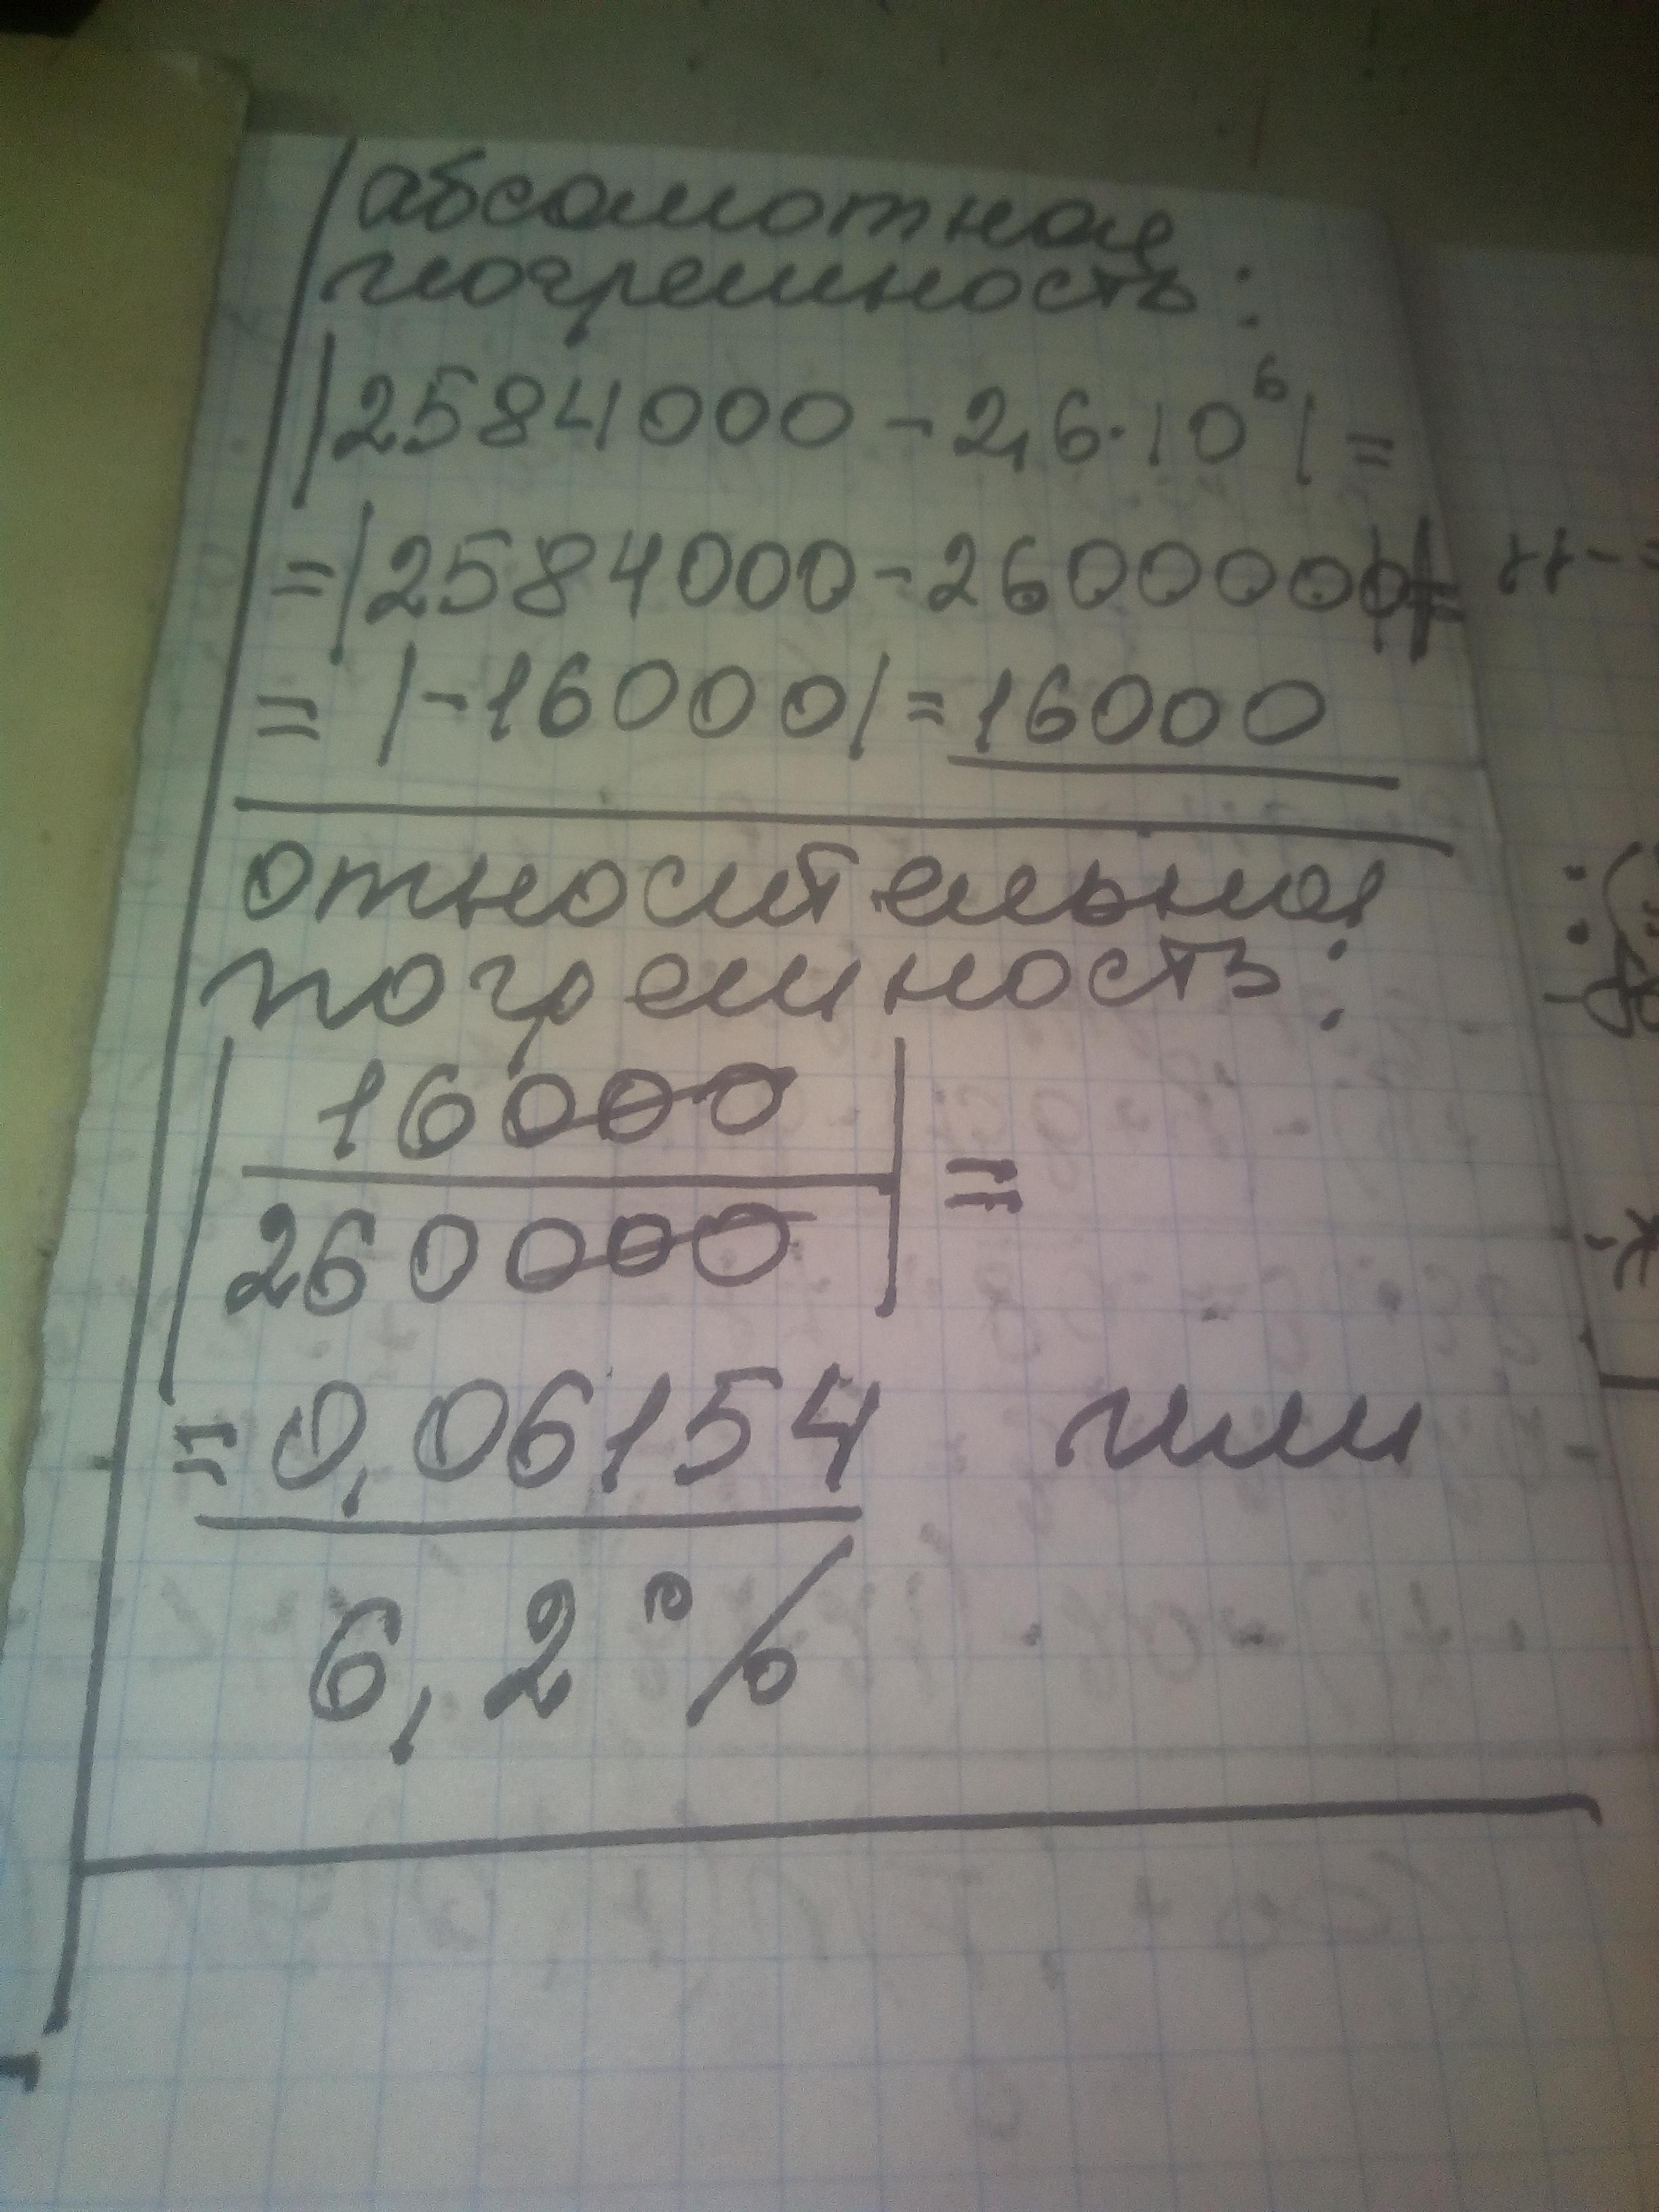 абсолютная
погрешность:
|2584000-2,6·10⁶|=
=|2584000-2600000|=
=|-16000|=16000
относительная
погрешность:
|16000
260000|=
=0,06154 или
6,2%